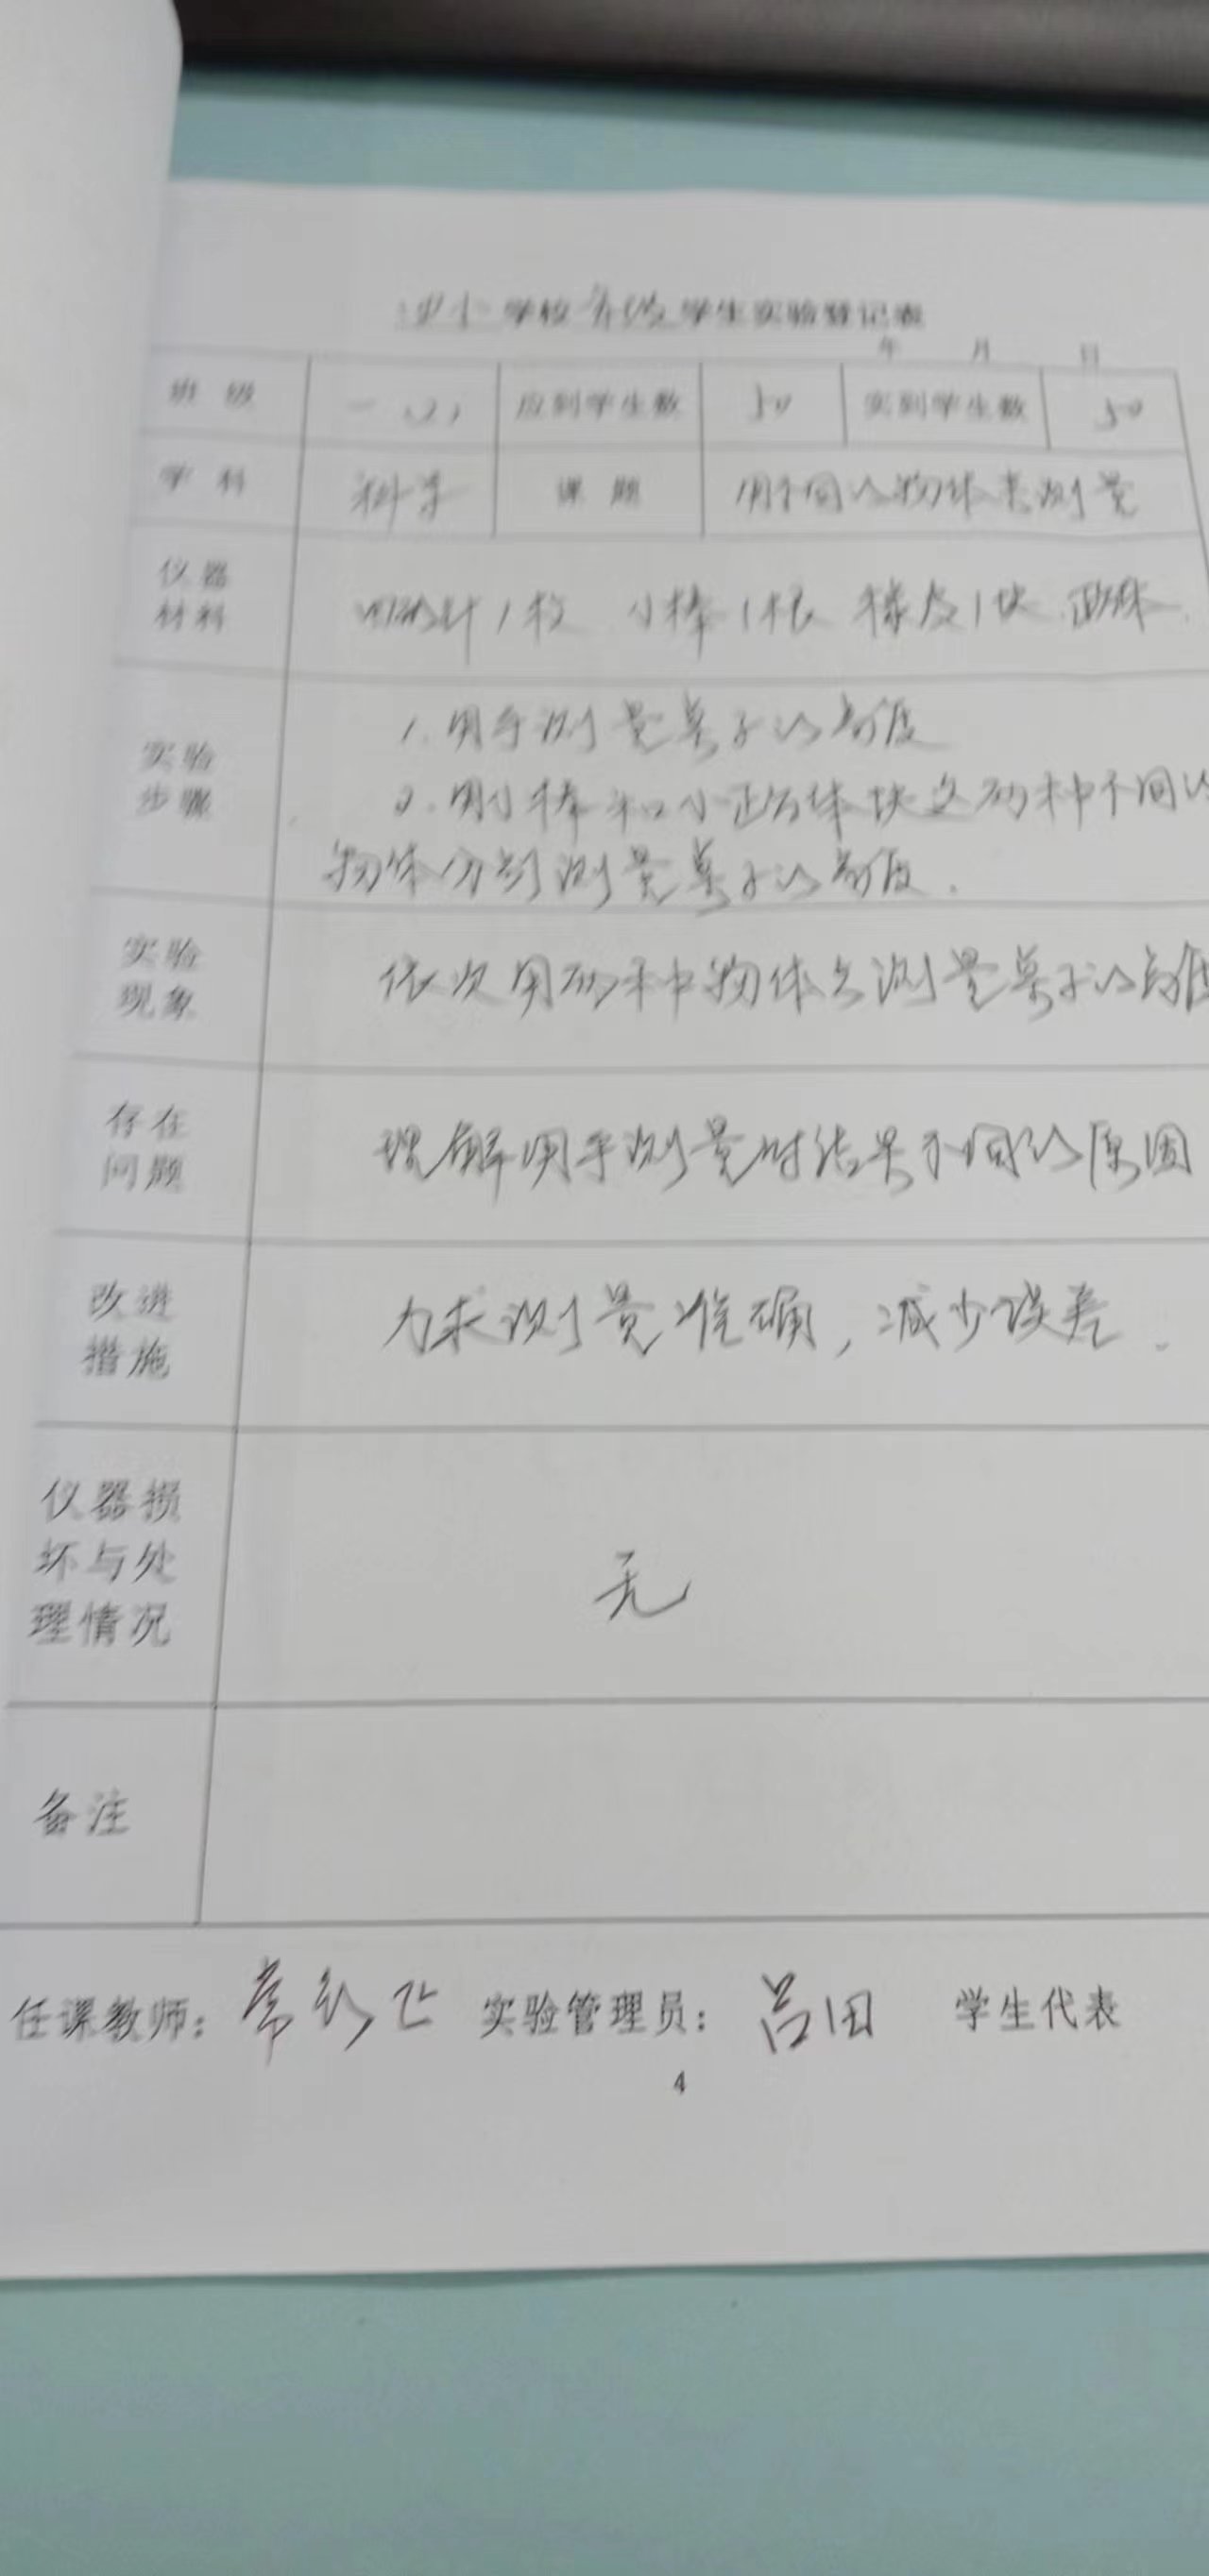 学校 学生实验登记表
年 月 日
班 级 一(2) 应到学生数 50 实到学生数 50
学 科 科学 课 题 用不同的物体来测量
仪器
材料
1枚 小棒1根 橡皮1块
实验
步骤
1.用手测量桌子的高度
2.用小棒和小正方体块这两种不同的
物体分别测量桌子的高度.
实验
现象
依次用两种物体去测量桌子的高度
存在
问题
理解用手测量时结果不同的原因
改进
措施
力求测量准确,减少误差.
仪器损
坏与处
理情况
无
备注
任课教师: 常 实验管理员: 吕田 学生代表
4